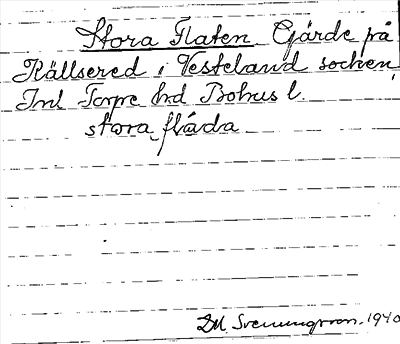 Stora Flaten. Gärde på
Källsered i Vesteland socken,
Inl Torpe hd Bohus l.
stora flåda
DM. Svenungsson. 1940